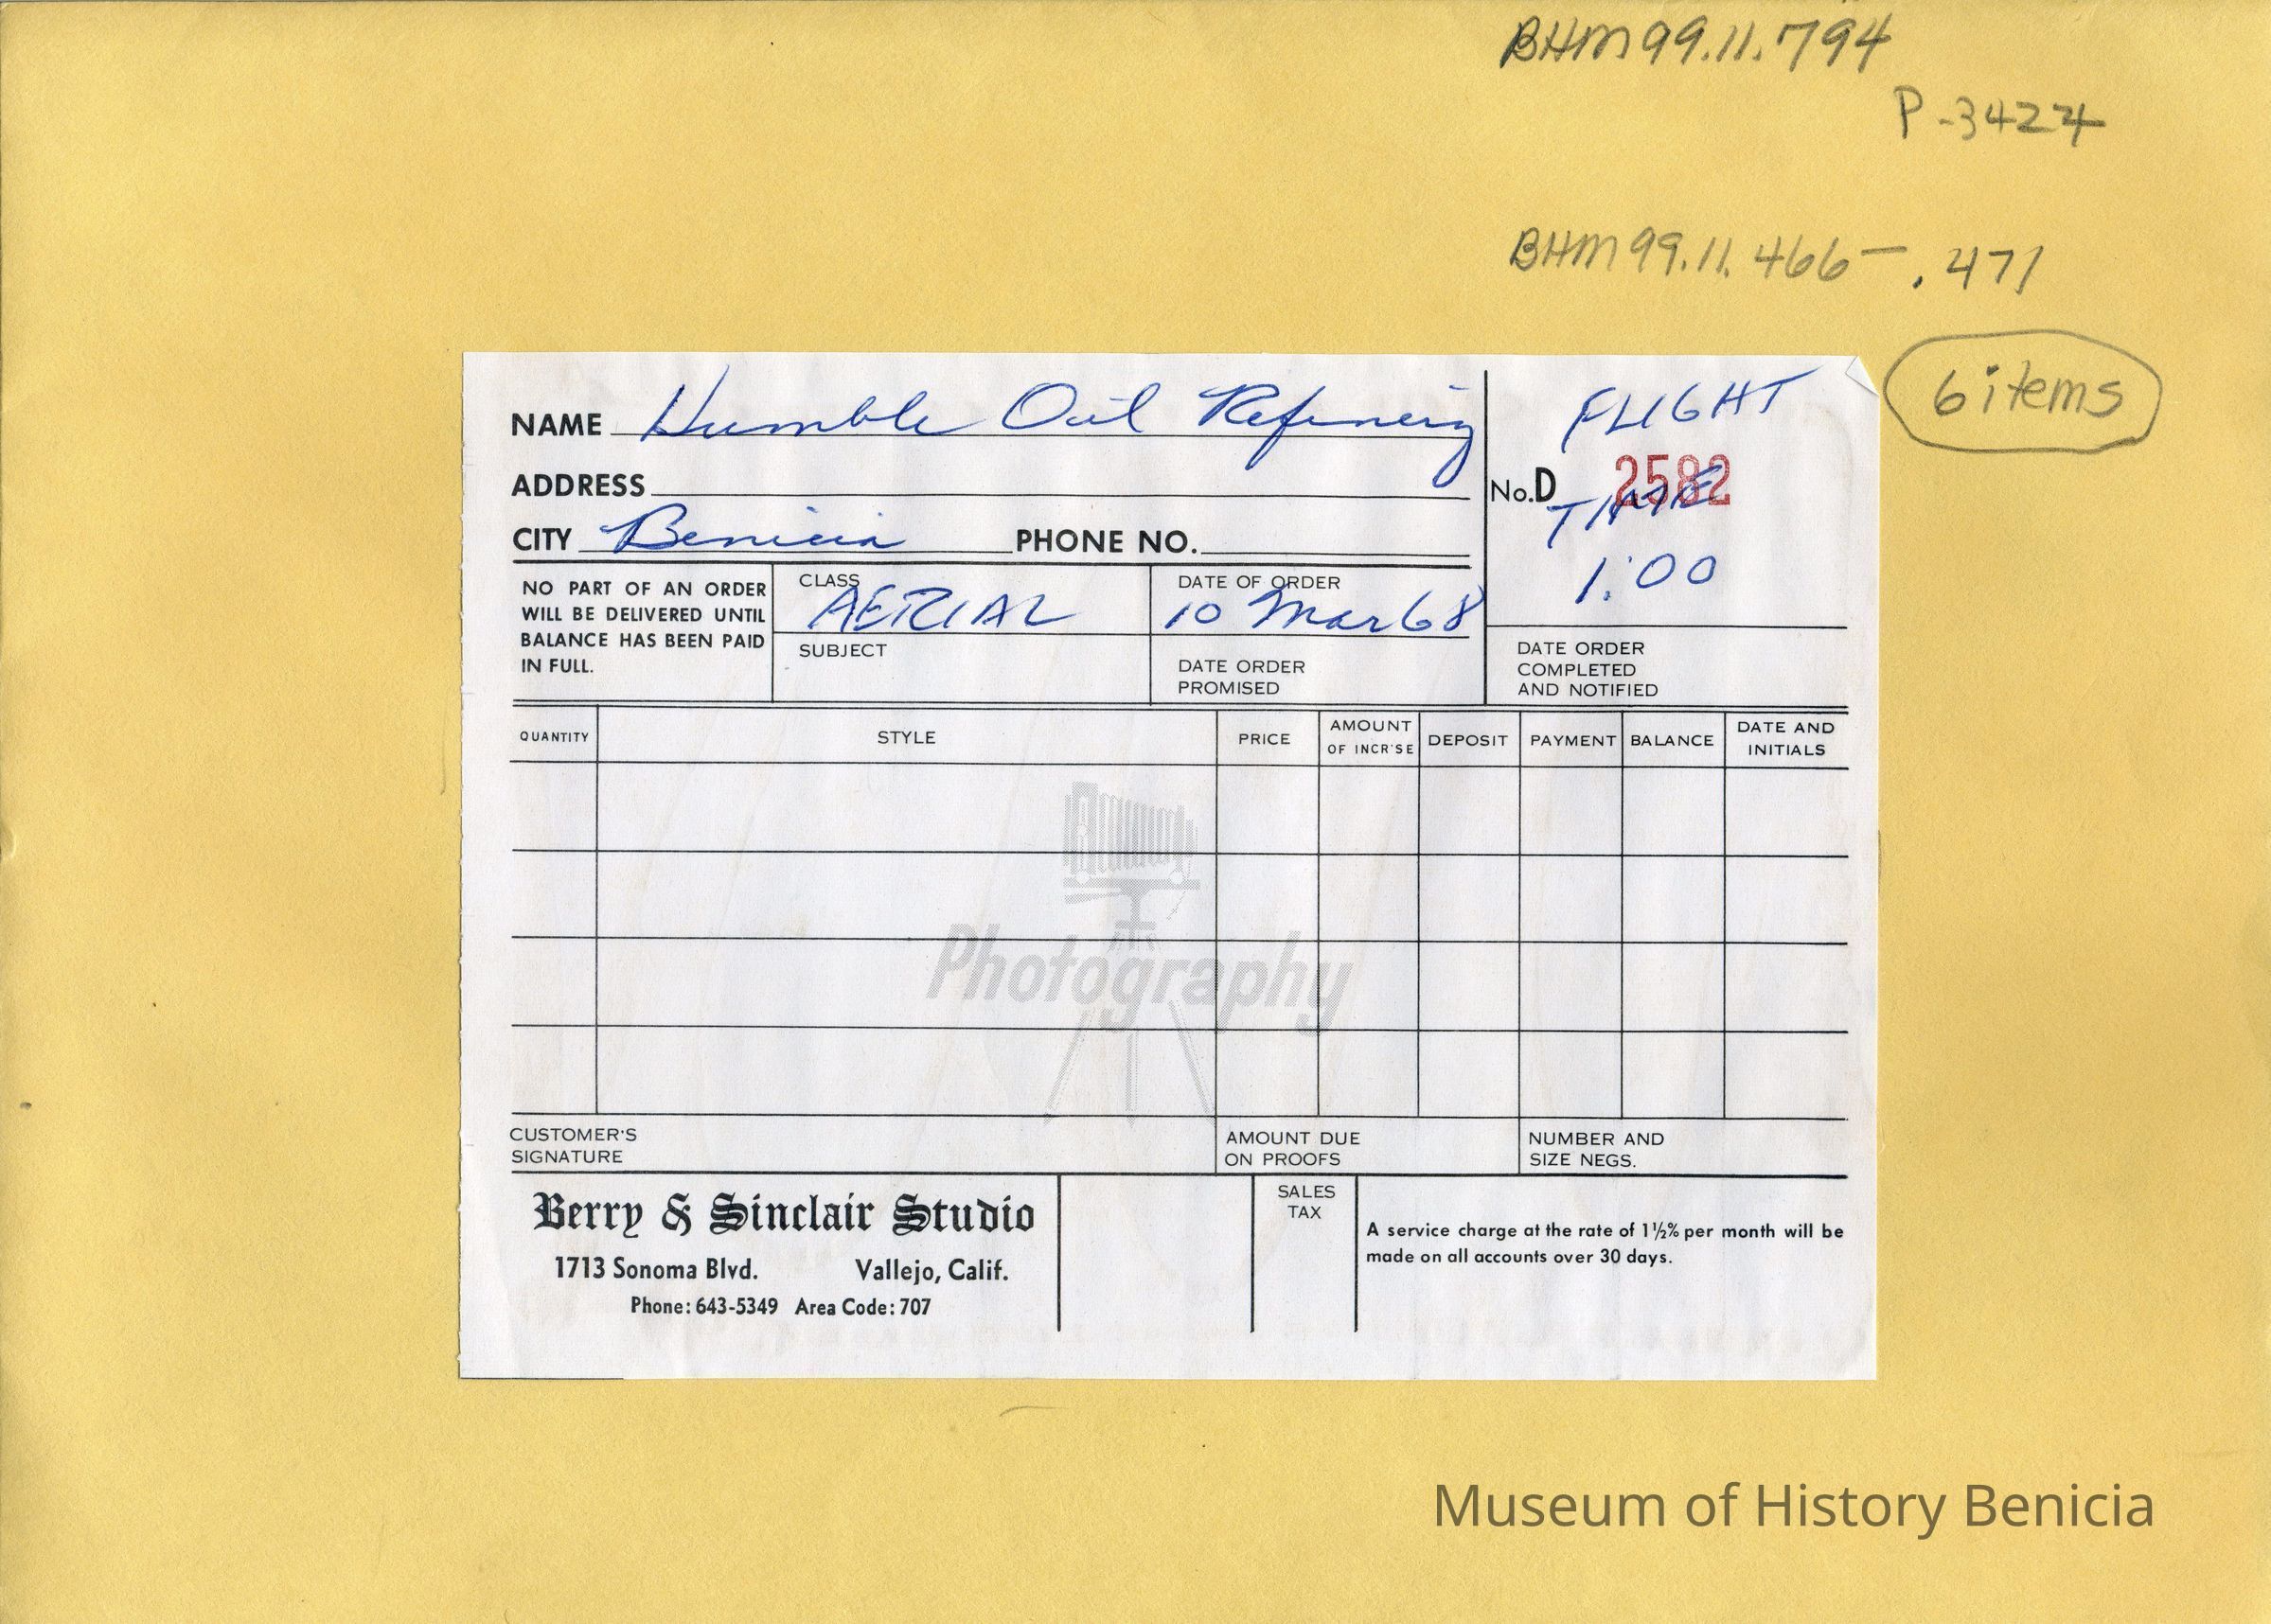 BHM99.11.794
P-3424
BHM99.11.466-.471
6 items
NAME Humble Oil Refinery
FLIGHT
ADDRESS
No.D 2582
TIME
CITY Benicia PHONE NO.
1:00
NO PART OF AN ORDER
WILL BE DELIVERED UNTIL
BALANCE HAS BEEN PAID
IN FULL.
CLASS
AERIAL
SUBJECT
DATE OF ORDER
10 Mar 68
DATE ORDER
PROMISED
DATE ORDER
COMPLETED
AND NOTIFIED
QUANTITY
STYLE
PRICE
AMOUNT
OF INCR'SE
DEPOSIT
PAYMENT
BALANCE
DATE AND
INITIALS
Photography
CUSTOMER'S
SIGNATURE
AMOUNT DUE
ON PROOFS
NUMBER AND
SIZE NEGS.
Berry & Sinclair Studio
1713 Sonoma Blvd. Vallejo, Calif.
Phone: 643-5349 Area Code: 707
SALES
TAX
A service charge at the rate of 1½% per month will be
made on all accounts over 30 days.
Museum of History Benicia